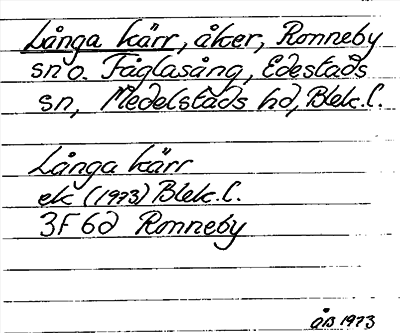 Långa kärr, åker, Ronneby
sn o. Fåglasång, Edestads
sn, Medelstads hd, Blek. l.
Långa kärr
ek (1973) Blek. l.
3F 6d Ronneby
ÅB 1973